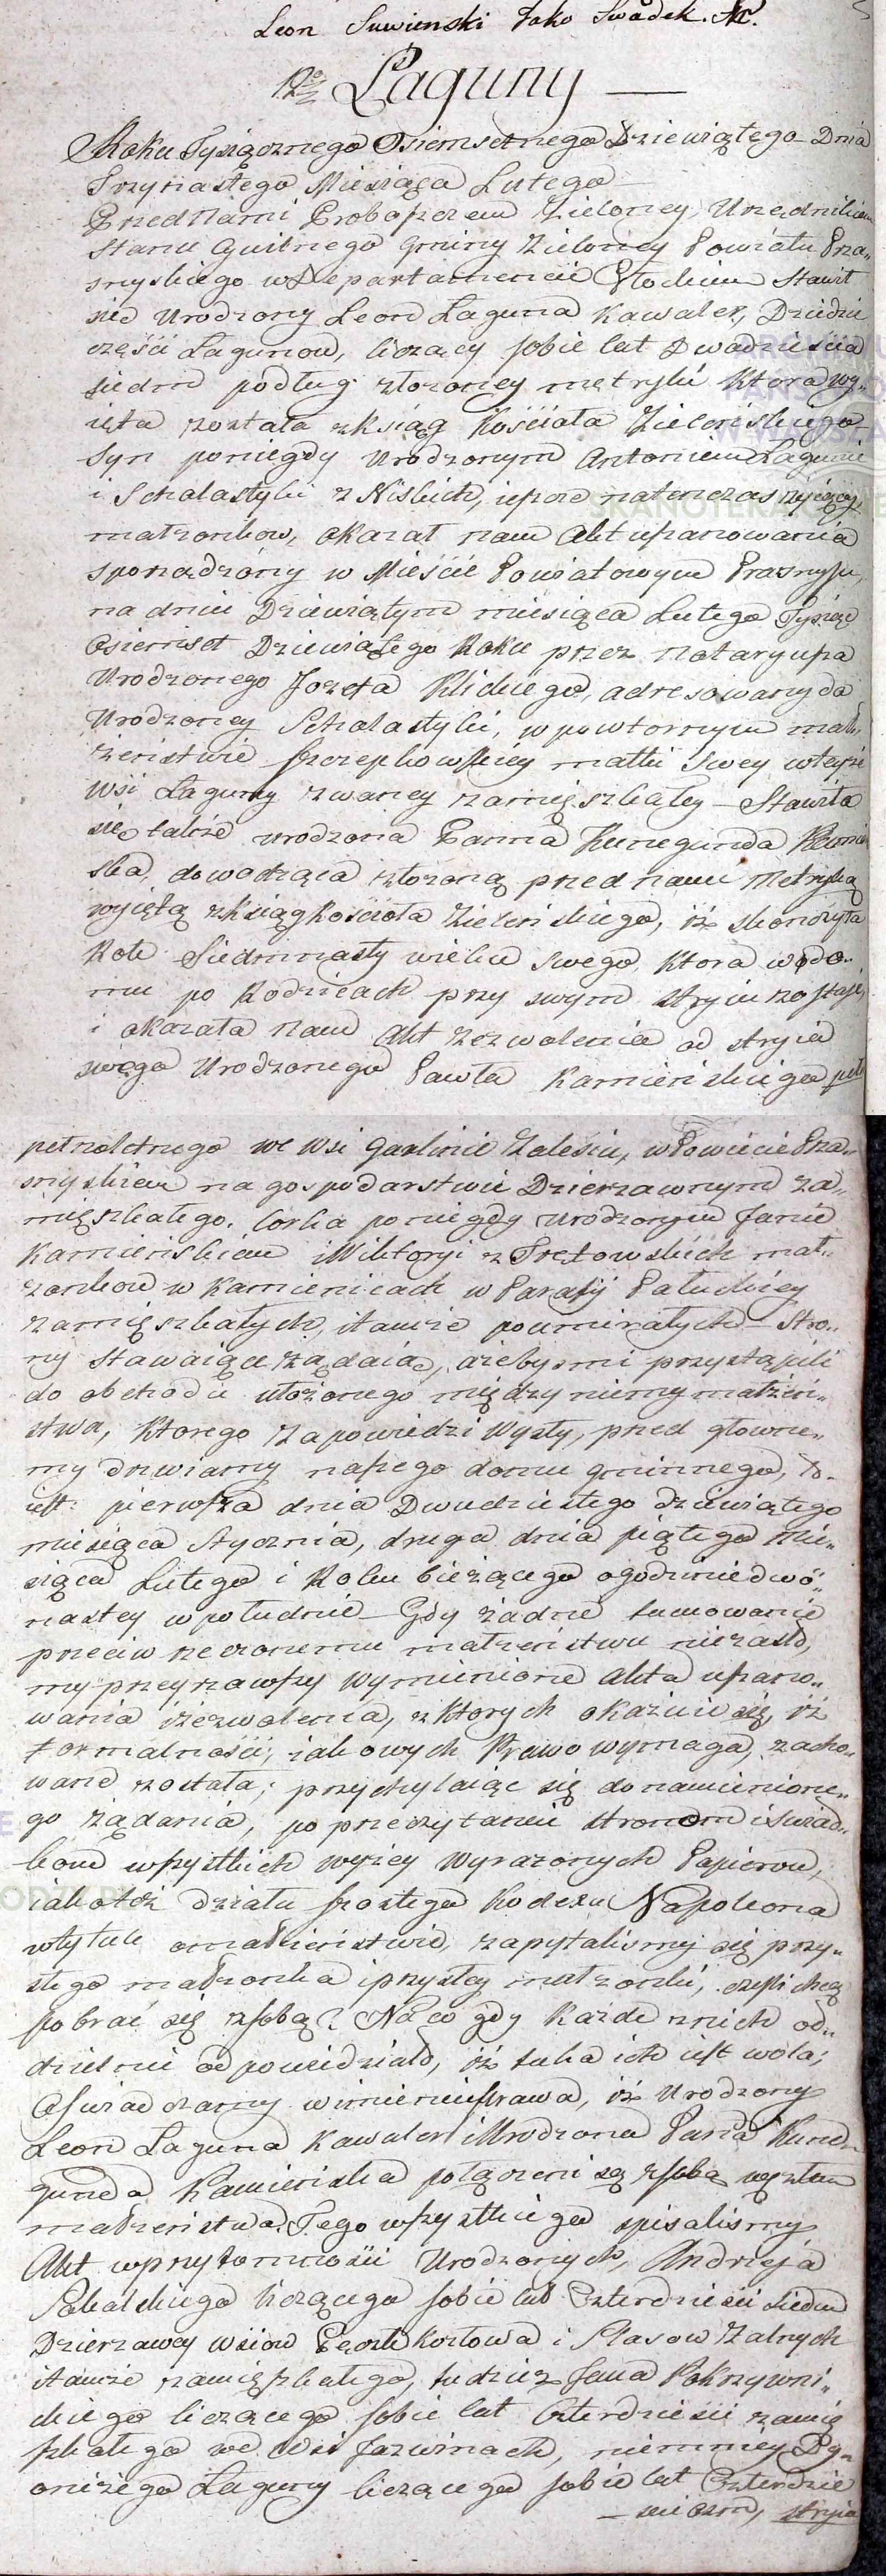 Leon Suwienski Jako Swadek. Mr.
12 Laguny
Roku Tysiącznego Osiemsetnego Dziewiątego Dnia
Trzynastego Miesiąca Lutego
Przed Nami Proboszczem Zieloney, Urzędnikiem
Stanu Cywilnego Gminy Zieloney Powiatu Prza„
snyskiego w Departamencie Płockim Stawił
się Urodzony Leon Laguna Kawaler, Dziedzic
części Lagunow, liczący sobie lat Dwadzieścia
siedm podług złozoney metryki Ktora wy„
ięta została z ksiąg Kościoła Zielenskiego
Syn poniegdy Urodzonym Antonim Lagunie
i Scholastyki z Niskich, ieszcze natenczas żyiącey
małżonkow, okazał nam Akt uszanowania
sporządzony w Mieście Powiatowym Prasnyszu,
na dniu Dziewiątym miesiąca Lutego Tysiąc
Osiemset Dziewiątego Roku przez Notaryusza
Urodzonego Jozefa Klickiego, adresowany do
Urodzoney Scholastyki, w powtornym mał„
żeństwie Szczepkowskiey matki swey w teyże
wsi Laguny zwaney zamięszkałey – Stawiła
się także urodzona Panna Kunegunda Kamień
ska, dowodząca złozoną przed nami Metryką
wyiętą z ksiąg Kościoła Zielenskiego, iż skończyła
Rok Siedmnasty wieku swego, Ktora w do„
mu po Rodzicach przy swym stryiu zostaje,
i okazała nam Akt zezwolenia od stryia
swego Urodzonego Pawła Kamieńskiego peł
pełnoletnego we Wsi Garlinie Zalesiu, w Powiecie Prza„
snyskiem na gospodarstwie Dzierzawnym za„
mięszkałego. Corka poniegdy urodzonym Janie
Kamieńskim i Wiktoryi z Tretowskich mał„
żonkow w Kamienicach w Parafij Pałuckiey
zamięszkałych, i tamże poumirałych – Stro„
ny stawaiące żądaią, ażebysmi przystąpili
do obchodu ułożonego między niemy małżeń„
stwa, Ktorego Zapowiedzi Wyszły, przed głowne„
my drzwiamy naszego domu gminnego, to„
iest: pierwsza dnia Dwudziestego dziewiątego
miesiąca Stycznia, druga dnia piątego Mie„
siąca Lutego i Roku bieżącego o godzinie dwó„
nastey w południe – Gdy żadne tamowanie
przeciw rzeczonemu małżenstwu niezaszło,
my przeyrzawszy wymienione akta uszano„
wania i zezwolenia, z ktorych okazuie się, iż
formalności, iakowych Prawo wymaga, zacho„
wane zostały; przychylaiąc się do namienione„
go żądania, po przeczytaniu stronom i świad„
kom wszystkich wyżey Wyrazonych Papierow,
iako też działu szostego Kodexu Napoleona
w tytule o małżenstwie, zapytalismy się przy„
szłego małzonka i przyszłey małzonki, czyli chcą
pobrać się z sobą? Na co gdy każde z nich od„
dzielnie odpowiedziało, iż taka ich iest wola;
Oświadczamy w imieniu Prawa, iż Urodzony
Leon Laguna Kawaler i Urodzona Panna Kune„
gunda Kamieńska połączeni są z sobą węzłem
małżenstwa. Tego wszystkiego spisalismy
Akt w przytomności Urodzonych, Andrzeja
Sabalskiego liczącego sobie lat Czterdzieści siedm
Dzierzawcy wsiow Pęczki Kozłowa i
i tamże zamięszkałego, tudzież Jana Pokrzywni„
ckiego liczącego sobie lat Czterdzieści zamię
szkałego we Wsi Jazwinach, niemniey Dy„
onizego Laguny liczącego sobie lat Czterdzie
– ści osm, stryia